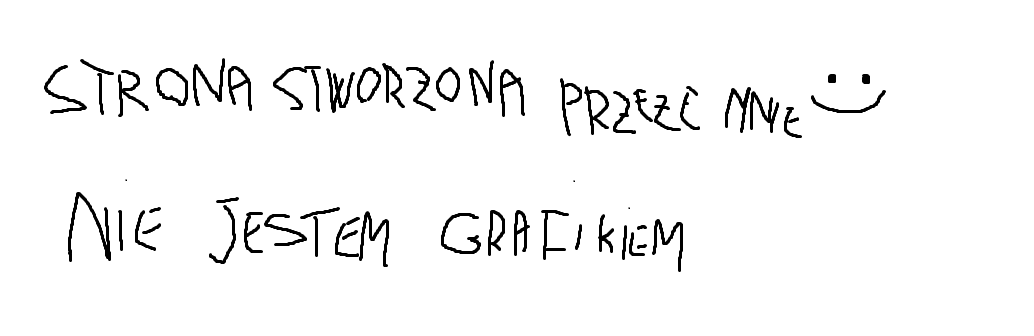 STRONA STWORZONA PRZEZE MNIE
NIE JESTEM GRAFIKIEM